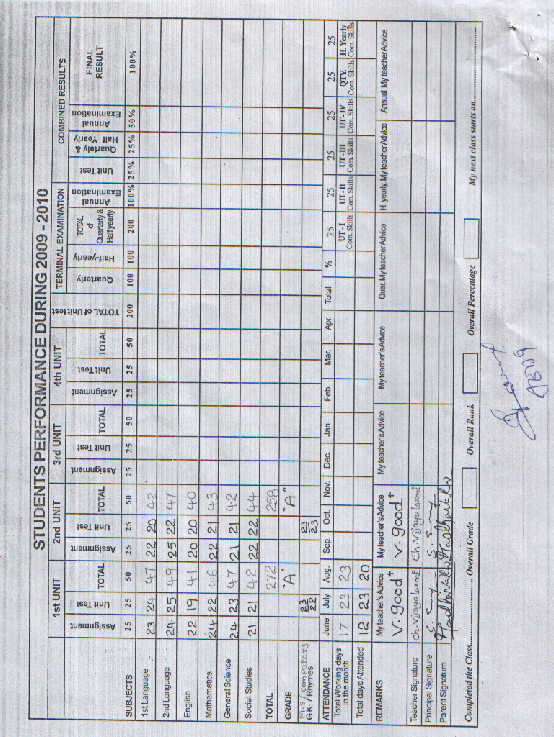 STUDENTS PERFORMANCE DURING 2009 - 2010
1st UNIT 2nd UNIT 3rd UNIT 4th UNIT TERMINAL EXAMINATION COMBINED RESULTS
SUBJECTS Assignment Unit Test TOTAL Assignment Unit Test TOTAL Assignment Unit Test TOTAL Assignment Unit Test TOTAL TOTAL of Unit test Quarterly Half-yearly TOTAL of Quarterly & Half yearly Annual Examination Unit Test Quarterly & Half Yearly Annual Examination FINAL RESULT
25 25 50 25 25 50 25 25 50 25 25 50 200 100 100 200 100% 25% 25% 50% 100%
1st Language 23 24 47 22 20 42
2nd Language 24 25 49 25 22 47
English 22 19 41 20 20 40
Mathematics 24 22 46 22 21 43
General Science 24 23 47 21 21 42
Social Studies 21 21 42 22 22 44
TOTAL 272 258
GRADE "A" "A"
GK / Rhymes
ATTENDANCE June July Aug. Sep. Oct. Nov. Dec. Jan Feb Mar. Apr. Total %
25 25 25 25 25 25
UT - I Com. Skills UT - II Com. Skills UT - III Com. Skills UT - IV Com. Skills QTY. Com. Skills H. Yearly Com. Skills
Total Working days in the month 17 23 23
Total days Attended 12 23 20
REMARKS My teacher's Advice My teacher's Advice My teacher's Advice My teacher's Advice Quar. My teacher Advice H. yearly. My teacher Advice Annual My teacher Advice
V. good V. good
Teacher Signature
Principal Signature
Parent Signature
Completed the Class Overall Grade Overall Rank Overall Percentage My next class starts on